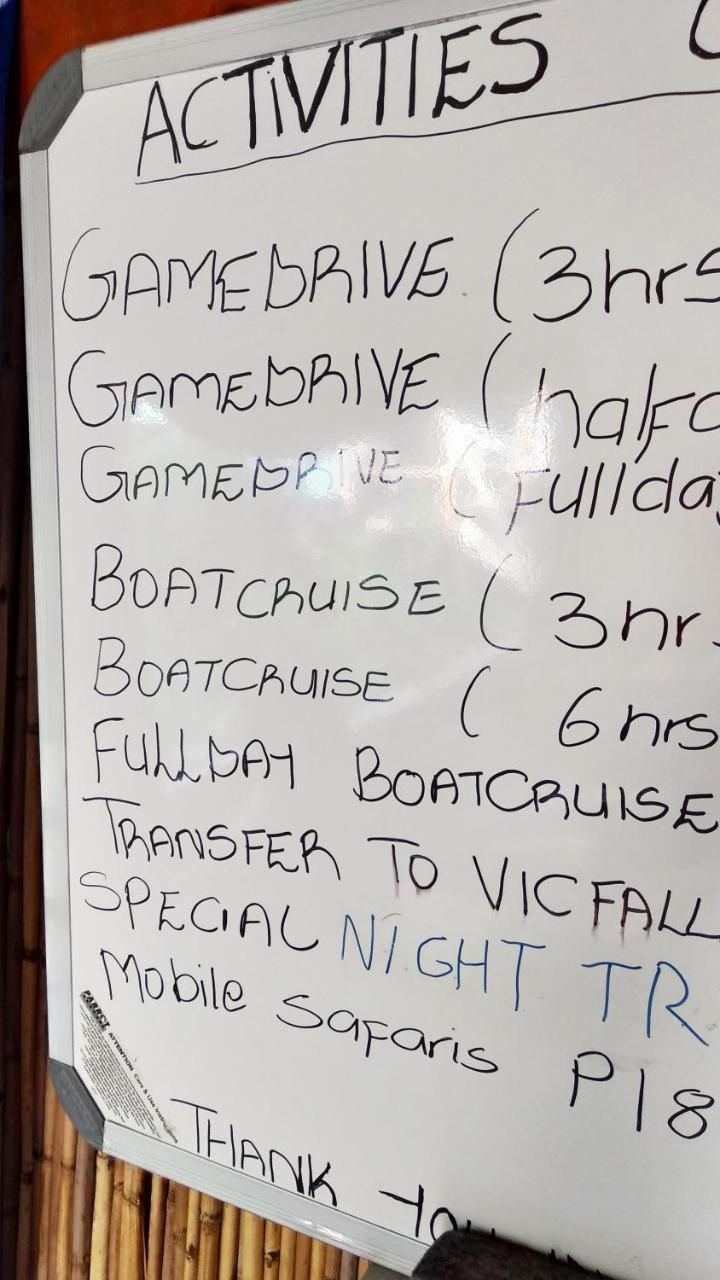 ACTIVITIES
GAMEDRIVE (3hrs
GAMEDRIVE (half
GAMEDRIVE (Fullday
BOATCRUISE (3hr
BOATCRUISE ( 6hrs
FULLDAY BOATCRUISE
TRANSFER TO VICFALL
SPECIAL NIGHT TR
Mobile Safaris P18
PARROT
ATTENTION Care & Use Instructions
THANK YOU